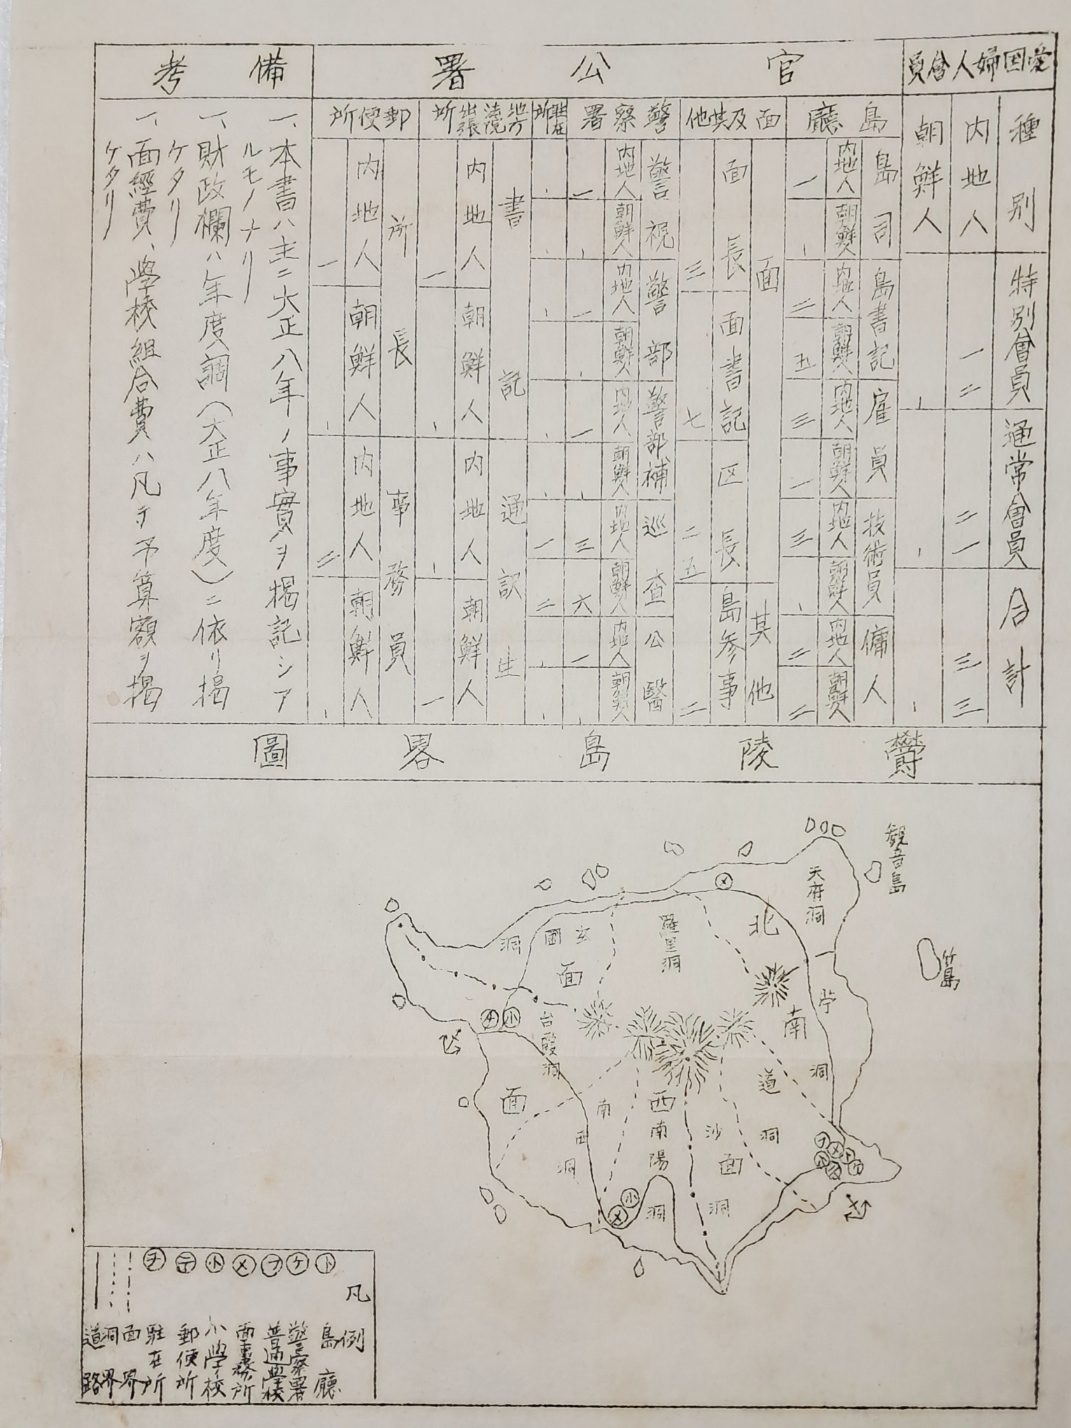 愛国婦人會員
種別
特別會員
通常會員
合計
内地人
一二
二一
三三
朝鮮人
官公署
島廳
島司
島書記
雇員
技術員
傭人
内地人
朝鮮人
内地人
朝鮮人
内地人
朝鮮人
内地人
朝鮮人
内地人
朝鮮人
一
二
五
三
一
三
二
二
面及其他
面
其他
面長
面書記
区長
島参事
三
七
二五
二
警察署
警視
警部
警部補
巡査
公醫
内地人
朝鮮人
内地人
朝鮮人
内地人
朝鮮人
内地人
朝鮮人
内地人
朝鮮人
一
一
一
三
六
一
一
二
書記
通訳生
内地人
朝鮮人
内地人
朝鮮人
一
一
郵便所
所長
事務員
内地人
朝鮮人
内地人
朝鮮人
一
二
備考
一、本書ハ主ニ大正八年ノ事實ヲ掲記シア
ルモノナリ
一、財政欄ハ年度調(大正八年度)ニ依リ掲
ケタリ
一、面經費、學校組合費ハ凡テ予算額ヲ掲
ケタリ
欝陵島畧圖
観音島
天府洞
竹島
北
羅里洞
玄圃洞
面
苧洞
南
台霞洞
道洞
面
西
南陽洞
沙洞
面
南西洞
凡例
ト 島廳
ケ 警察署
フ 普通學校
メ 面事務所
小 小學校
〒 郵便所
チ 駐在所
面界
洞界
道路